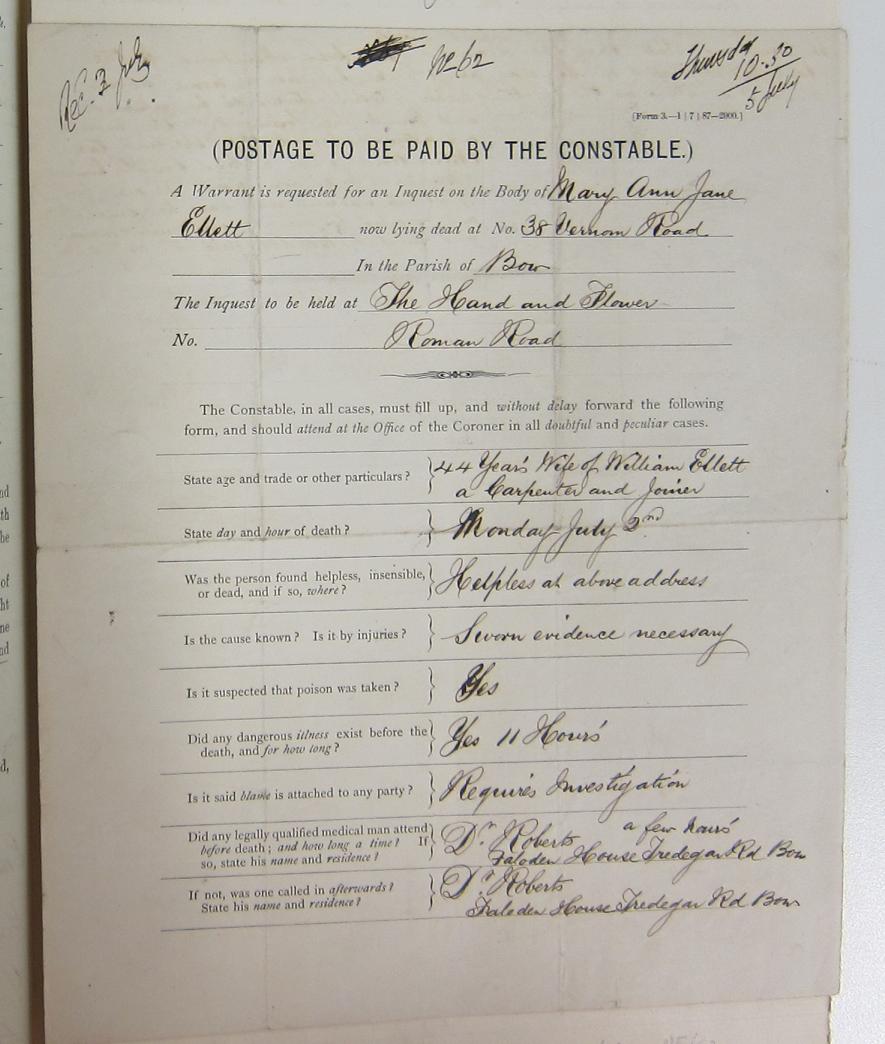 Rec. 3 July
No 62
Thursday
10.30
5 July
[Form 3.—1 | 7 | 87—2000.]
(POSTAGE TO BE PAID BY THE CONSTABLE.)
A Warrant is requested for an Inquest on the Body of Mary Ann Jane
Ellett now lying dead at No. 38 Vernon Road
In the Parish of Bow
The Inquest to be held at The Hand and Flower
No. Roman Road
The Constable, in all cases, must fill up, and without delay forward the following
form, and should attend at the Office of the Coroner in all doubtful and peculiar cases.
State age and trade or other particulars? } 44 Years Wife of William Ellett
a Carpenter and Joiner
State day and hour of death? } Monday July 2nd
Was the person found helpless, insensible,
or dead, and if so, where? } Helpless at above address
Is the cause known? Is it by injuries? } Sworn evidence necessary
Is it suspected that poison was taken? } Yes
Did any dangerous illness exist before the
death, and for how long? } Yes 11 Hours
Is it said blame is attached to any party? } Requires Investigation
Did any legally qualified medical man attend
before death; and how long a time? If
so, state his name and residence? } Dr. Roberts a few hours
Faloden House Tredegar Rd Bow
If not, was one called in afterwards?
State his name and residence? } Dr. Roberts
Faloden House Tredegar Rd Bow